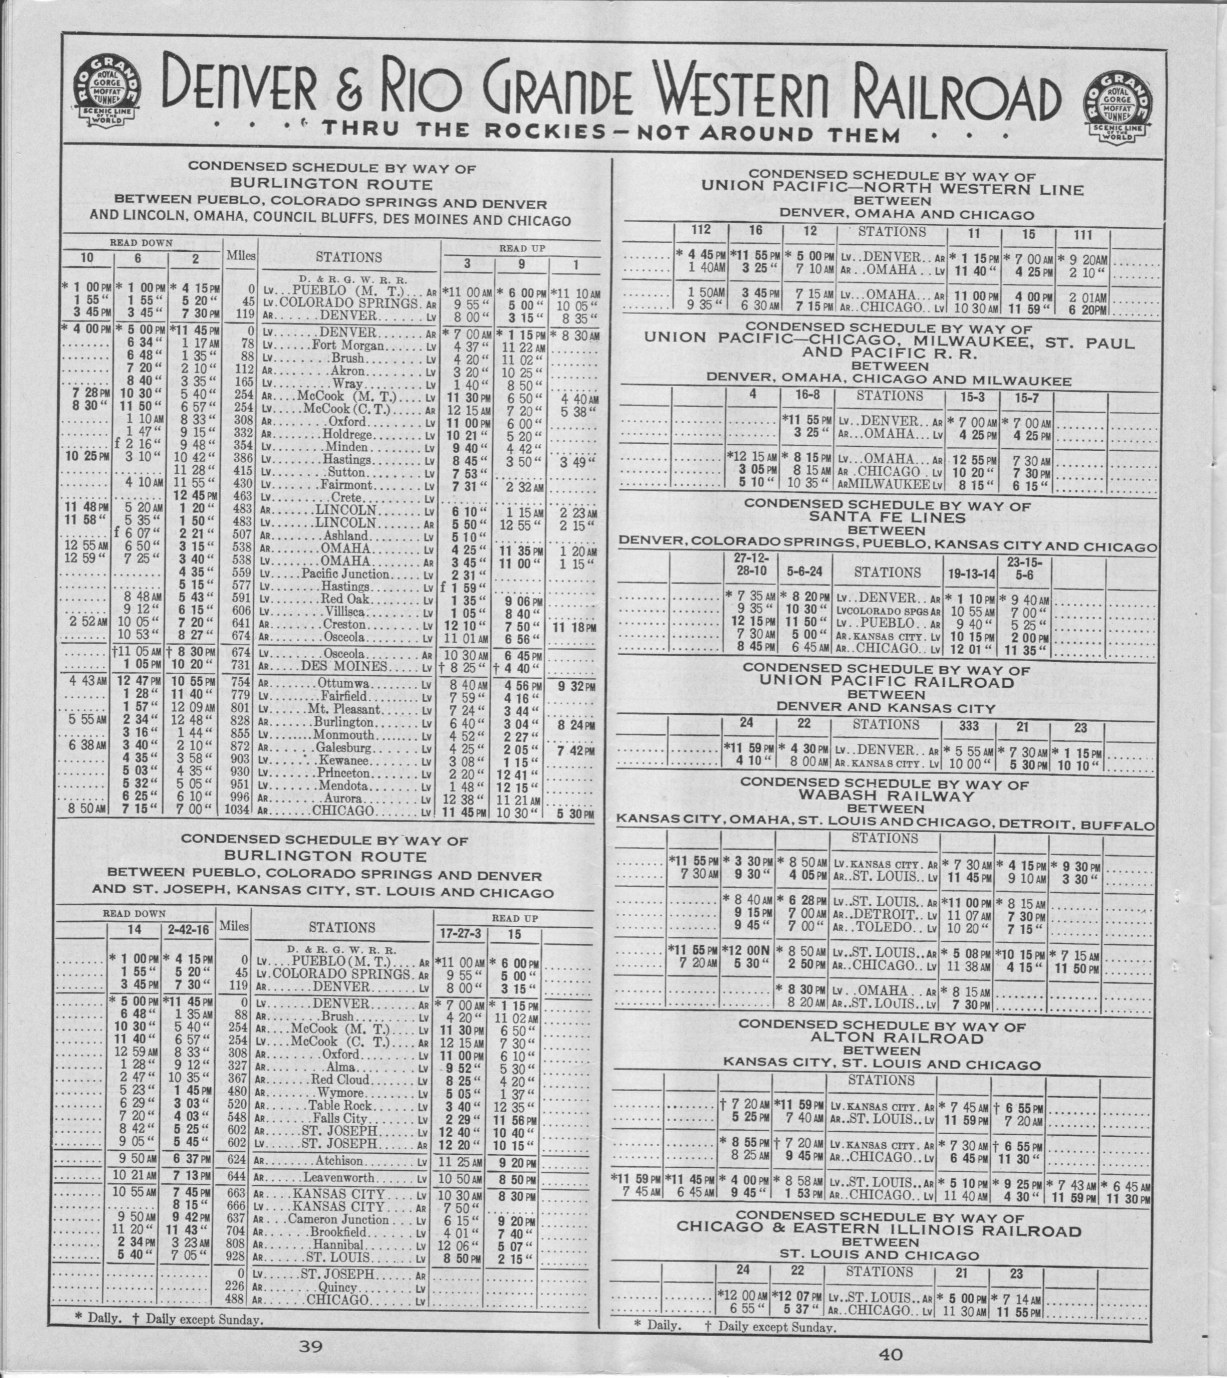 RIO GRANDE
ROYAL
GORGE
MOFFAT
TUNNEL
SCENIC LINE
OF THE
WORLD
DENVER & RIO GRANDE WESTERN RAILROAD
THRU THE ROCKIES – NOT AROUND THEM
RIO GRANDE
ROYAL
GORGE
MOFFAT
TUNNEL
SCENIC LINE
OF THE
WORLD
CONDENSED SCHEDULE BY WAY OF
BURLINGTON ROUTE
BETWEEN PUEBLO, COLORADO SPRINGS AND DENVER
AND LINCOLN, OMAHA, COUNCIL BLUFFS, DES MOINES AND CHICAGO
READ DOWN Miles STATIONS READ UP
10 6 2 3 9 1
D. & R. G. W. R. R.
* 1 00 PM * 1 00 PM * 4 15 PM 0 Lv...PUEBLO (M. T.)....Ar *11 00 AM * 6 00 PM *11 10 AM
1 55 " 1 55 " 5 20 " 45 Lv.COLORADO SPRINGS.Ar 9 55 " 5 00 " 10 05 "
3 45 PM 3 45 " 7 30 PM 119 Ar.......DENVER.......Lv 8 00 " 3 15 " 8 35 "
* 4 00 PM * 5 00 PM *11 45 PM 0 Lv.......DENVER.......Ar * 7 00 AM * 1 15 PM * 8 30 AM
6 34 " 1 17 AM 78 Lv......Fort Morgan......Lv 4 37 " 11 22 AM
6 48 " 1 35 " 88 Lv........Brush........Lv 4 20 " 11 02 "
7 20 " 2 10 " 112 Ar........Akron........Lv 3 20 " 10 25 "
8 40 " 3 35 " 165 Lv........Wray........Lv 1 40 " 8 50 "
7 28 PM 10 30 " 5 40 " 254 Ar....McCook (M. T.)....Lv 11 30 PM 6 50 " 4 40 AM
8 30 " 11 50 " 6 57 " 254 Lv....McCook (C. T.)....Ar 12 15 AM 7 20 " 5 38 "
1 10 AM 8 33 " 308 Ar........Oxford........Lv 11 00 PM 6 00 "
1 47 " 9 15 " 332 Ar.......Holdrege.......Lv 10 21 " 5 20 "
f 2 16 " 9 48 " 354 Lv.......Minden.......Lv 9 40 " 4 42 "
10 25 PM 3 10 " 10 42 " 386 Lv.......Hastings.......Lv 8 45 " 3 50 " 3 49 "
11 28 " 415 Lv.......Sutton.......Lv 7 53 "
4 10 AM 11 55 " 430 Lv.......Fairmont.......Lv 7 31 " 2 32 AM
12 45 PM 463 Lv.......Crete.......Lv
11 48 PM 5 20 AM 1 20 " 483 Ar.......LINCOLN.......Lv 6 10 " 1 15 AM 2 23 AM
11 58 " 5 35 " 1 50 " 483 Lv.......LINCOLN.......Ar 5 50 " 12 55 " 2 15 "
f 6 07 " 2 21 " 507 Lv.......Ashland.......Lv 5 10 "
12 55 AM 6 50 " 3 15 " 538 Ar.......OMAHA.......Lv 4 25 " 11 35 PM 1 20 AM
12 59 " 7 25 " 3 40 " 538 Lv.......OMAHA.......Ar 3 45 " 11 00 " 1 15 "
4 35 " 559 Lv.....Pacific Junction.....Lv 2 31 "
5 15 " 577 Lv.......Hastings.......Lv f 1 59 "
8 48 AM 5 43 " 591 Lv.......Red Oak.......Lv 1 35 " 9 06 PM
9 12 " 6 15 " 606 Lv.......Villisca.......Lv 1 05 " 8 40 "
2 52 AM 10 05 " 7 20 " 641 Ar.......Creston.......Lv 12 10 " 7 50 " 11 18 PM
10 53 " 8 27 " 674 Ar.......Osceola.......Lv 11 01 AM 6 56 "
†11 05 AM † 8 30 PM 674 Lv.......Osceola.......Ar 10 30 AM 6 45 PM
1 05 PM 10 20 " 731 Ar.....DES MOINES.....Lv † 8 25 " † 4 40 "
4 43 AM 12 47 PM 10 55 PM 754 Ar.......Ottumwa.......Lv 8 40 AM 4 56 PM 9 32 PM
1 28 " 11 40 " 779 Lv.......Fairfield.......Lv 7 59 " 4 16 "
1 57 " 12 09 AM 801 Lv.....Mt. Pleasant.....Lv 7 24 " 3 44 "
5 55 AM 2 34 " 12 48 " 828 Ar.......Burlington.......Lv 6 40 " 3 04 " 8 24 PM
3 16 " 1 44 " 855 Lv.......Monmouth.......Lv 4 52 " 2 27 "
6 38 AM 3 40 " 2 10 " 872 Ar.......Galesburg.......Lv 4 25 " 2 05 " 7 42 PM
4 35 " 3 58 " 903 Lv.......Kewanee.......Lv 3 08 " 1 15 "
5 03 " 4 35 " 930 Lv.......Princeton.......Lv 2 20 " 12 41 "
5 32 " 5 05 " 951 Lv.......Mendota.......Lv 1 48 " 12 15 "
6 25 " 6 10 " 996 Ar.......Aurora.......Lv 12 38 " 11 21 AM
8 50 AM 7 15 " 7 00 " 1034 Ar.......CHICAGO.......Lv 11 45 PM 10 30 " 5 30 PM
CONDENSED SCHEDULE BY WAY OF
BURLINGTON ROUTE
BETWEEN PUEBLO, COLORADO SPRINGS AND DENVER
AND ST. JOSEPH, KANSAS CITY, ST. LOUIS AND CHICAGO
READ DOWN Miles STATIONS READ UP
14 2-42-16 17-27-3 15
D. & R. G. W. R. R.
* 1 00 PM * 4 15 PM 0 Lv....PUEBLO (M. T.)....Ar *11 00 AM * 6 00 PM
1 55 " 5 20 " 45 Lv.COLORADO SPRINGS.Ar 9 55 " 5 00 "
3 45 PM 7 30 " 119 Ar.......DENVER.......Lv 8 00 " 3 15 "
* 5 00 PM *11 45 PM 0 Lv.......DENVER.......Ar * 7 00 AM * 1 15 PM
6 48 " 1 35 AM 88 Lv.......Brush.......Lv 4 20 " 11 02 AM
10 30 " 5 40 " 254 Ar....McCook (M. T.)....Lv 11 30 PM 6 50 "
11 40 " 6 57 " 254 Lv....McCook (C. T.)....Ar 12 15 AM 7 30 "
12 59 AM 8 33 " 308 Ar.......Oxford.......Lv 11 00 PM 6 10 "
1 28 " 9 12 " 327 Ar.......Alma.......Lv 9 52 " 5 30 "
2 47 " 10 35 " 367 Ar.......Red Cloud.......Lv 8 25 " 4 20 "
5 23 " 1 45 PM 480 Ar.......Wymore.......Lv 5 05 " 1 37 "
6 29 " 3 03 " 520 Ar.......Table Rock.......Lv 3 40 " 12 35 "
7 20 " 4 03 " 548 Ar.......Falls City.......Lv 2 29 " 11 56 PM
8 42 " 5 25 " 602 Ar.....ST. JOSEPH.....Lv 12 40 " 10 40 "
9 05 " 5 45 " 602 Lv.....ST. JOSEPH.....Ar 12 20 " 10 15 "
9 50 AM 6 37 PM 624 Ar.......Atchison.......Lv 11 25 AM 9 20 PM
10 21 AM 7 13 PM 644 Ar.....Leavenworth.....Lv 10 50 AM 8 50 PM
10 55 AM 7 45 PM 663 Ar....KANSAS CITY....Lv 10 30 AM 8 30 PM
8 15 " 666 Lv....KANSAS CITY....Ar 7 50 "
9 50 AM 9 42 PM 637 Ar...Cameron Junction...Lv 6 15 " 9 20 PM
11 20 " 11 43 " 704 Ar......Brookfield......Lv 4 01 " 7 40 "
2 34 PM 3 23 AM 808 Ar......Hannibal......Lv 12 06 " 5 07 "
5 40 " 7 05 " 928 Ar......ST. LOUIS......Lv 8 50 PM 2 15 "
0 Lv.....ST. JOSEPH.....Ar
226 Ar.......Quincy.......Lv
488 Ar......CHICAGO......Lv
* Daily. † Daily except Sunday.
39
CONDENSED SCHEDULE BY WAY OF
UNION PACIFIC—NORTH WESTERN LINE
BETWEEN
DENVER, OMAHA AND CHICAGO
112 16 12 STATIONS 11 15 111
* 4 45 PM *11 55 PM * 5 00 PM Lv..DENVER..Ar * 1 15 PM * 7 00 AM * 9 20 AM
1 40 AM 3 25 " 7 10 AM Ar...OMAHA...Lv 11 40 " 4 25 PM 2 10 "
1 50 AM 3 45 PM 7 15 AM Lv...OMAHA...Ar 11 00 PM 4 00 PM 2 01 AM
9 35 " 6 30 AM 7 15 PM Ar..CHICAGO..Lv 10 30 AM 11 59 " 6 20 PM
CONDENSED SCHEDULE BY WAY OF
UNION PACIFIC—CHICAGO, MILWAUKEE, ST. PAUL
AND PACIFIC R. R.
BETWEEN
DENVER, OMAHA, CHICAGO AND MILWAUKEE
4 16-8 STATIONS 15-3 15-7
*11 55 PM Lv..DENVER..Ar * 7 00 AM * 7 00 AM
3 25 " Ar...OMAHA...Lv 4 25 PM 4 25 PM
*12 15 AM * 8 15 PM Lv...OMAHA...Ar 12 55 PM 7 30 AM
3 05 PM 8 15 AM Ar .CHICAGO. Lv 10 20 " 7 30 PM
5 10 " 10 35 " Ar MILWAUKEE Lv 8 15 " 6 15 "
CONDENSED SCHEDULE BY WAY OF
SANTA FE LINES
BETWEEN
DENVER, COLORADO SPRINGS, PUEBLO, KANSAS CITY AND CHICAGO
27-12-28-10 5-6-24 STATIONS 19-13-14 23-15-5-6
* 7 35 AM * 8 20 PM Lv..DENVER..Ar * 1 10 PM * 9 40 AM
9 35 " 10 30 " Lv COLORADO SPGS Ar 10 55 AM 7 00 "
12 15 PM 11 50 " Lv..PUEBLO..Ar 9 40 " 5 25 "
7 30 AM 5 00 " Ar.KANSAS CITY.Lv 10 15 PM 2 00 PM
8 45 PM 6 45 AM Ar..CHICAGO..Lv 12 01 " 11 35 "
CONDENSED SCHEDULE BY WAY OF
UNION PACIFIC RAILROAD
BETWEEN
DENVER AND KANSAS CITY
24 22 STATIONS 333 21 23
*11 59 PM * 4 30 PM Lv..DENVER..Ar * 5 55 AM * 7 30 AM * 1 15 PM
4 10 " 8 00 AM Ar.KANSAS CITY.Lv 10 00 " 5 30 PM 10 10 "
CONDENSED SCHEDULE BY WAY OF
WABASH RAILWAY
BETWEEN
KANSAS CITY, OMAHA, ST. LOUIS AND CHICAGO, DETROIT, BUFFALO
STATIONS
*11 55 PM * 3 30 PM * 8 50 AM Lv.KANSAS CITY.Ar * 7 30 AM * 4 15 PM * 9 30 PM
7 30 AM 9 30 " 4 05 PM Ar..ST. LOUIS..Lv 11 45 PM 9 10 AM 3 30 "
* 8 40 AM * 6 28 PM Lv..ST. LOUIS..Ar *11 00 PM * 8 15 AM
9 15 PM 7 00 AM Ar..DETROIT..Lv 11 07 AM 7 30 PM
9 45 " 7 00 " Ar..TOLEDO..Lv 10 20 " 7 15 "
*11 55 PM *12 00 N * 8 50 AM Lv..ST. LOUIS..Ar * 5 08 PM *10 15 PM * 7 15 AM
7 20 AM 5 30 " 2 50 PM Ar..CHICAGO..Lv 11 38 AM 4 15 " 11 50 PM
* 8 30 PM Lv...OMAHA...Ar * 8 15 AM
8 20 AM Ar..ST. LOUIS..Lv 7 30 PM
CONDENSED SCHEDULE BY WAY OF
ALTON RAILROAD
BETWEEN
KANSAS CITY, ST. LOUIS AND CHICAGO
STATIONS
† 7 20 AM *11 59 PM Lv.KANSAS CITY.Ar * 7 45 AM † 6 55 PM
5 25 PM 7 40 AM Ar..ST. LOUIS..Lv 11 59 PM 7 20 AM
* 8 55 PM † 7 20 AM Lv.KANSAS CITY.Ar * 7 30 AM † 6 55 PM
8 25 AM 9 45 PM Ar..CHICAGO..Lv 6 45 PM 11 30 "
*11 59 PM *11 45 PM * 4 00 PM * 8 58 AM Lv..ST. LOUIS..Ar * 5 10 PM * 9 25 PM * 7 43 AM * 6 45 AM
7 45 AM 6 45 AM 9 45 " 1 53 PM Ar..CHICAGO..Lv 11 40 AM 4 30 " 11 59 PM 11 30 PM
CONDENSED SCHEDULE BY WAY OF
CHICAGO & EASTERN ILLINOIS RAILROAD
BETWEEN
ST. LOUIS AND CHICAGO
24 22 STATIONS 21 23
*12 00 AM *12 07 PM Lv..ST. LOUIS..Ar * 5 00 PM * 7 14 AM
6 55 " 5 37 " Ar..CHICAGO..Lv 11 30 AM 11 55 PM
* Daily. † Daily except Sunday.
40